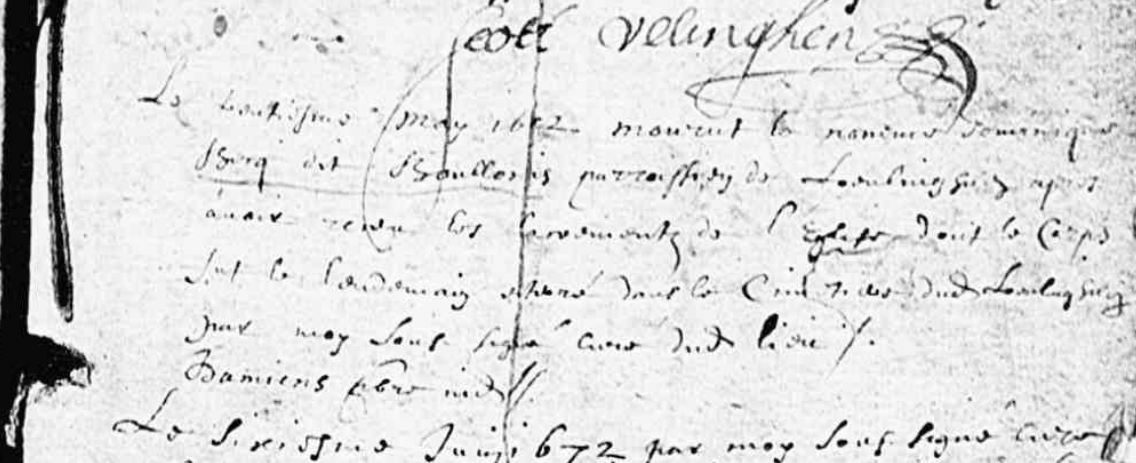 velinghen
Le May 1672 mourut le nommé dominique
dit parroissien de Loeulinghen apres
avoir receu les sacrements de l'Eglise dont le Corps
fut le lendemain enterré dans le Cimetiere dud Loeulinghen
par moy sous signé curé dud lieu
Damiens pbre
Le sixiesme Juin 1672 par moy sous signé curé